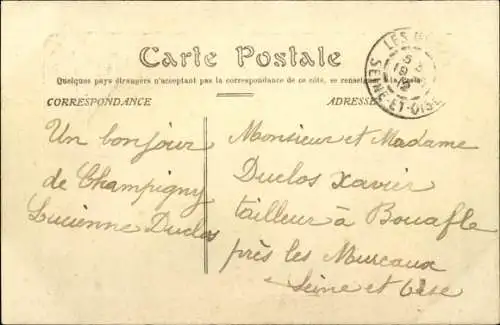 Carte Postale
Quelques pays étrangers n'acceptant pas la correspondance de ce côté, se renseigner à la Poste
CORRESPONDANCE
ADRESSE
LES
SEINE-ET-OISE
Un bonjour
de Champigny
Lucienne Duclos
Monsieur et Madame
Duclos Xavier
tailleur à Bouafle
près les Mureaux
Seine et Oise